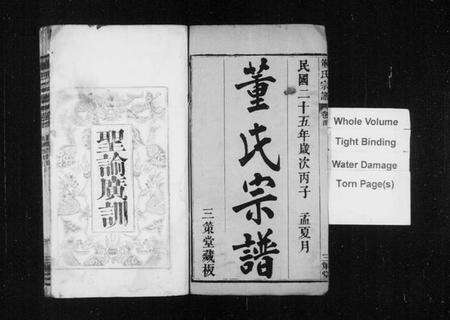 民國二十五年歲次丙子　孟夏月
董氏宗譜
三策堂藏板
聖諭廣訓
Whole Volume
Tight Binding
Water Damage
Torn Page(s)